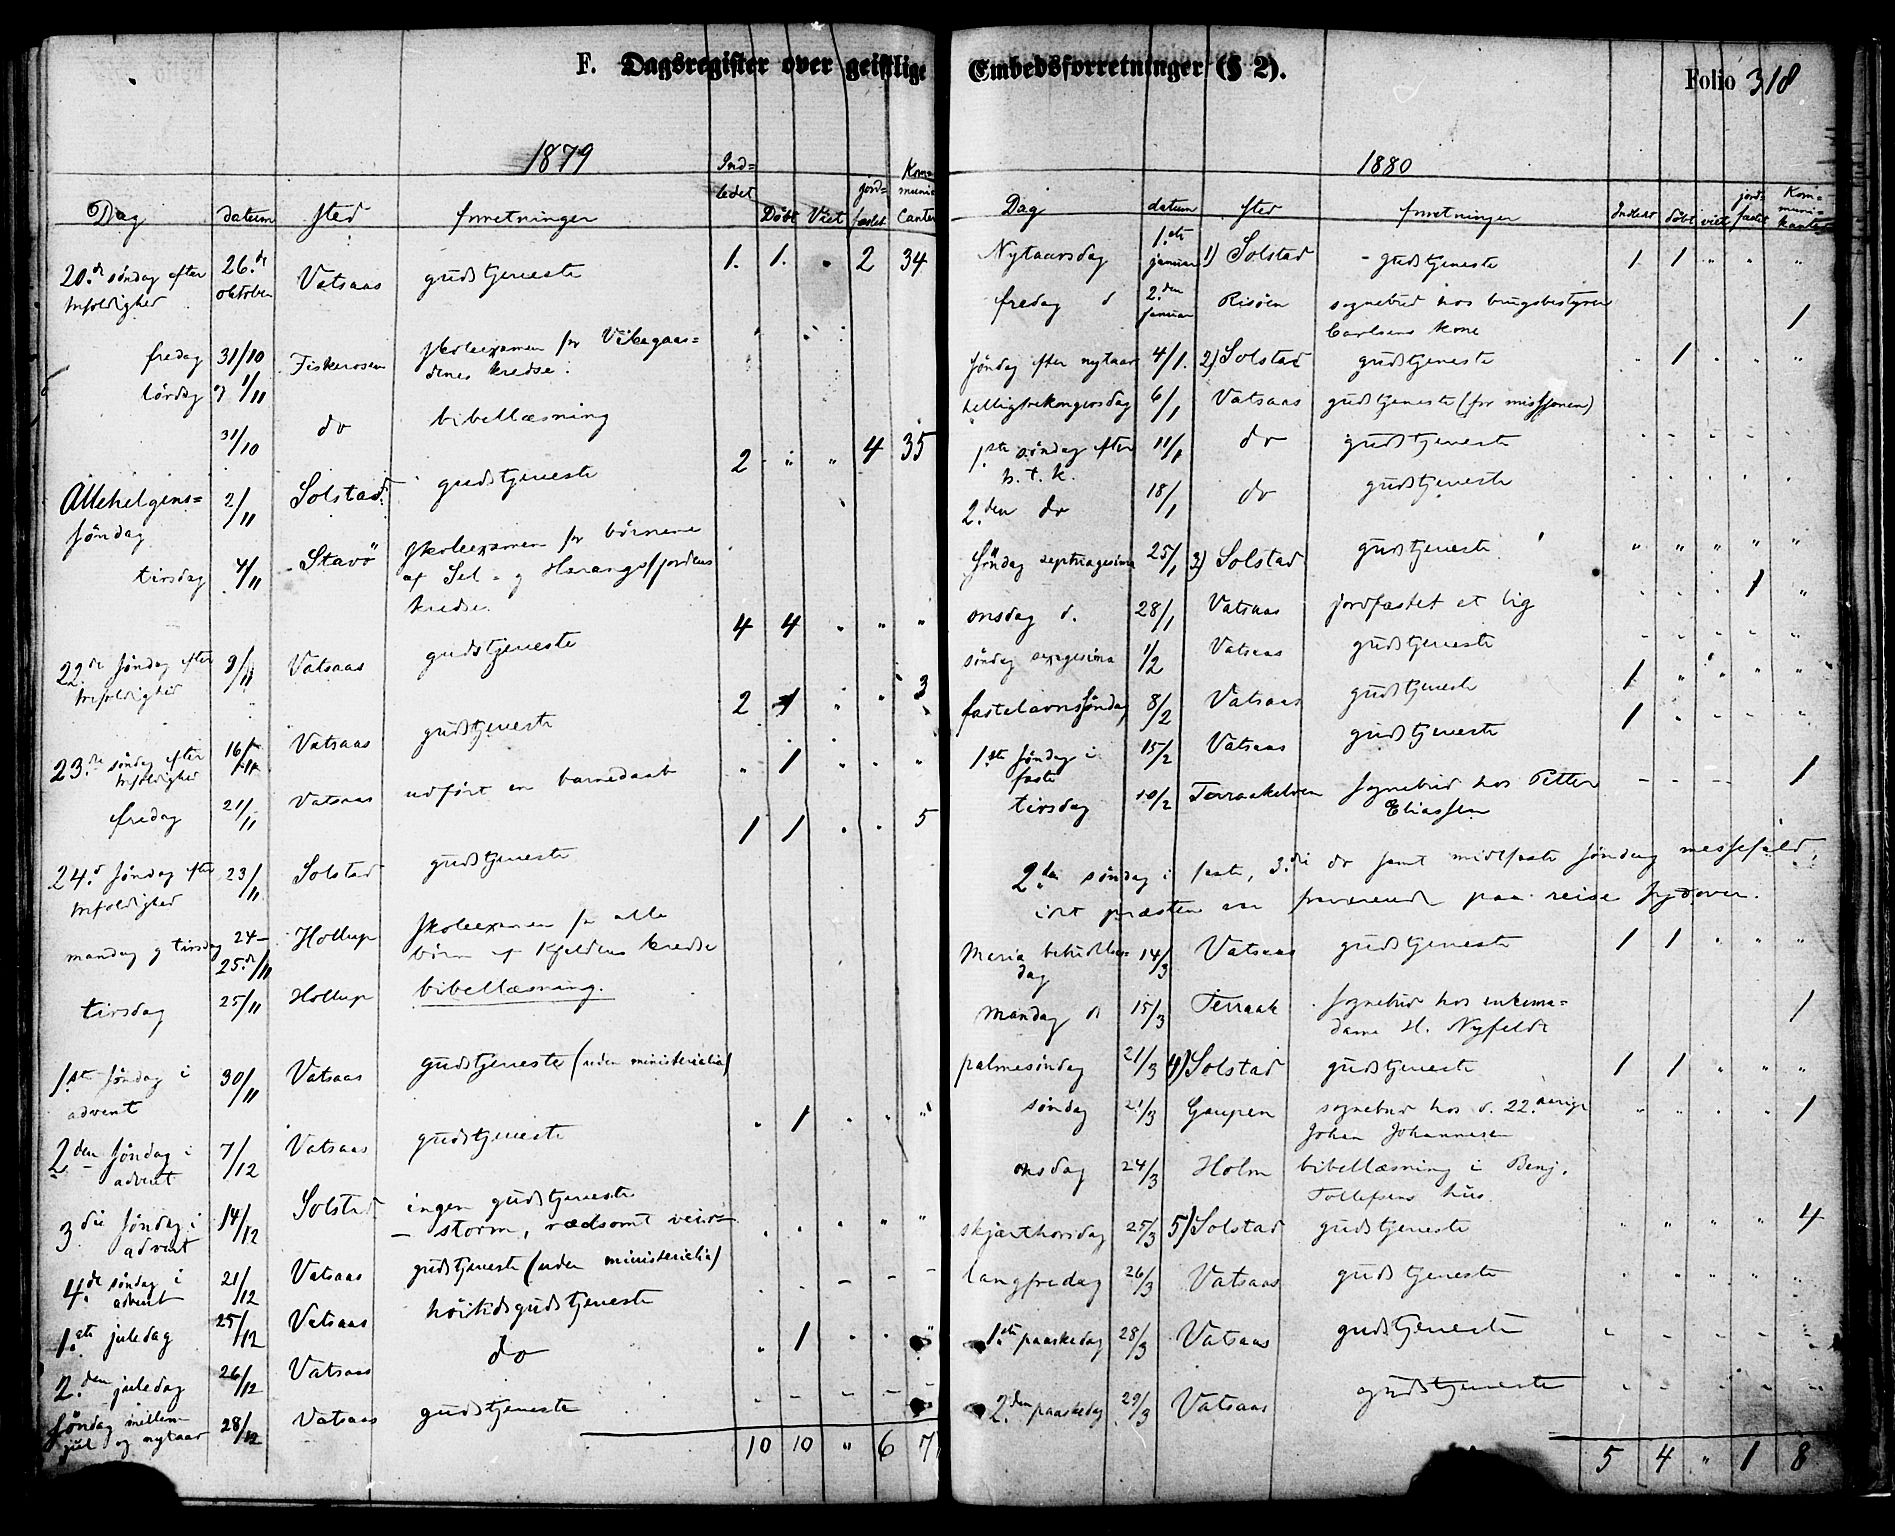 F. Dagsregister over geistlige Embedsforretninger (§ 2).
Folio 318
1879
Dag datum sted forretninger Ind=ledet Døbt Viet jord=fæstet Kom=muni=Canter
20.de søndag efter trefoldighed 26.de oktober Vatsaas gudstjeneste 1. 1. " 2 34
fredag 31/10 Fiskerosen skoleexamen for Vikegaar=
lørdag og 1/11 denes kredse.
31/10 do bibellæsning
Allehelgens= 2/11 Solstad gudstjeneste 2 " " 4 35
søndag
tirsdag 4/11 Stavö skoleexamen for børnene
af Sel- og Harangsfjordens
kredse.
22.de søndag efter trefoldighed 9/11 Vatsaas gudstjeneste 4 4 " " "
23.de søndag efter trefoldighed 16/11 Vatsaas gudstjeneste 2 1 " " 3
fredag 21/11 Vatsaas udført en barnedaab " 1 " " "
24.d søndag efter trefoldighed 23/11 Solstad gudstjeneste 1 1 " " 5
mandag og tirsdag 24- Hollup skoleexamen for alle
25.de/11 børn af Kjeldens kredse
tirsdag 25/11 Hollup bibellæsning.
1.ste søndag i 30/11 Vatsaas gudstjeneste (uden ministerialia)
advent
2den søndag i advent 7/12 Vatsaas gudstjeneste " 1 " " "
3die søndag i advent 14/12 Solstad ingen gudstjeneste
– storm, rædsomt veir – " " " " "
4.de søndag i advent 21/12 Vatsaas gudstjeneste (uden ministerialia)
1.ste juledag 25/12 Vatsaas höitidsgudstjeneste " 1 " " "
2.den juledag 26/12 Vatsaas do
søndag mellem jul og nytaar 28/12 Vatsaas gudstjeneste
10 10 " 6 7
1880
Dag datum sted forretninger Indledt døbt viet jord=fæstet Kom=muni=kanter
Nytaarsdag 1.ste januar 1) Solstad gudstjeneste 1 1 " " "
fredag d 2.den januar Risöen sognebud hos brugsbestyrer
Carlsens kone 1
søndag efter nytaar 4/1. 2) Solstad gudstjeneste " 1 " " "
helligtrekongersdag 6/1 Vatsaas gudstjeneste (for missionen)
1.ste søndag efter 11/1 do gudstjeneste
h. t. k.
2.den do 18/1 do gudstjeneste
søndag septuagesima 25/1 3) Solstad gudstjeneste " " " " "
onsdag d. 28/1 Vatsaas jordfæstet et lig " " " 1 "
søndag sexagesima 1/2 Vatsaas gudstjeneste
fastelavnssøndag 8/2 Vatsaas gudstjeneste 1 " " " "
1.ste søndag i 15/2 Vatsaas gudstjeneste 1 " " " "
faste
tirsdag 10/2 Terraakelven sognebud hos Petter
Eliassen 1
2.den søndag i faste, 3.die do samt midtfaste søndag messefald,
idet præsten var fraværende paa reise sydover.
Maria bebudelses= 14/3 Vatsaas gudstjeneste 1 1 " " "
dag
mandag d 15/3 Terraak sognebud hos enkema=
dame H. Nyfeldt 1
palmesøndag 21/3 4) Solstad gudstjeneste 1 1 " " "
søndag 21/3 Gaupen sognebud hos d. 22.aarige
Johan Johannesen " " " " 1
onsdag 24/3 Holm bibellæsning i Benj.
Tollefsens hus.
skjærthorsdag 25/3 5) Solstad gudstjeneste " " " " 4
langfredag 26/3 Vatsaas gudstjeneste
1.ste paaskedag 28/3 Vatsaas gudstjeneste
2.den paaskedag 29/3 Vatsaas gudstjeneste
5 4 " 1 8